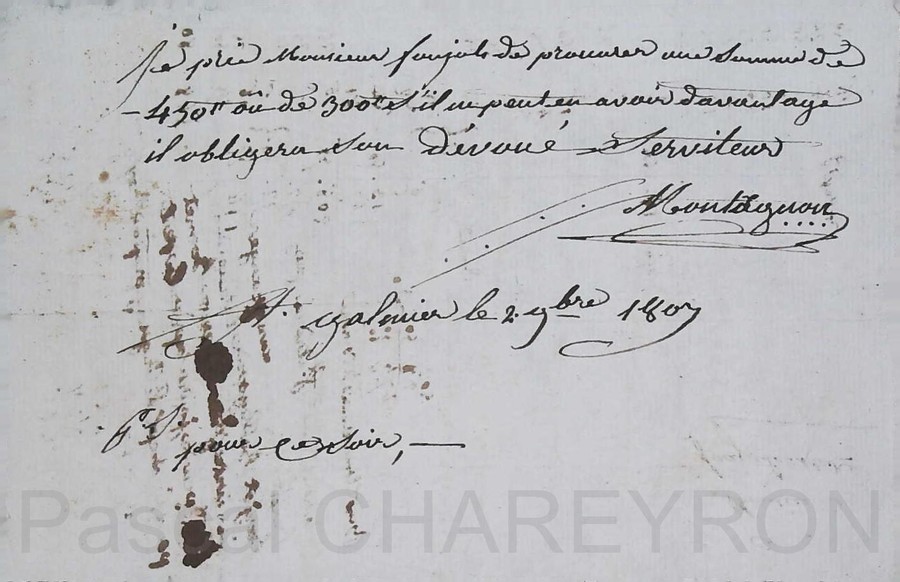 Je prie Monsieur foujols de procurer une Somme de
- 450 tt ou de 300 tt S'il ne peut en avoir davantage
il obligera Son dévoué Serviteur
Montagnon
St. galmier le 2 9bre 1807
P.S. pour ce Soir, —
Pascal CHAREYRON